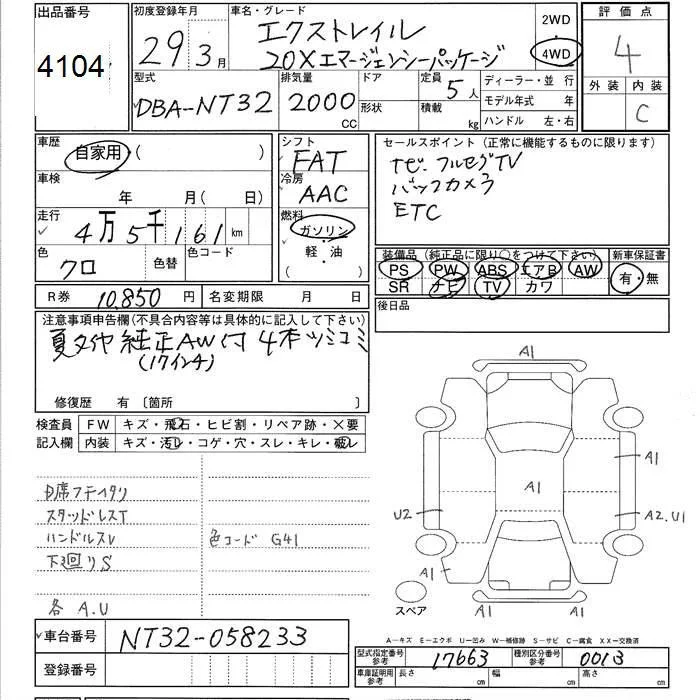 出品番号
4104
初度登録年月
29 3月
車名・グレード
エクストレイル
20Xエマージェンシーパッケージ
2WD
4WD
評価点
4
外装 内装
C
型式
DBA-NT32
排気量
2000
CC
ドア
形状
定員
5人
積載
kg
ディーラー・並行
モデル年式 年
ハンドル 左・右
車歴
自家用・( )
車検
年 月( 日)
走行
4万5千161km
色
クロ
色替
色コード
シフト
FAT
冷房
AAC
燃料
ガソリン
軽・油
( )
セールスポイント(正常に機能するものに限ります)
ナビ、フルセグTV
バックカメラ
ETC
装備品(純正品に限り○をつけて下さい)
新車保証書
PS PW ABS エアB AW
SR ナビ TV カワ
有・無
R券 10,850円
名変期限 月 日
後日品
注意事項申告欄(不具合内容等は具体的に記入して下さい)
夏タイヤ 純正AW付 4本ツミコミ
(17インチ)
修復歴 有〔箇所 〕
検査員
記入欄
FW キズ・飛石・ヒビ割・リペア跡・×要
内装 キズ・汚レ・コゲ・穴・スレ・キレ・破レ
スタッドレスT
ハンドルスレ
色コード G41
下廻りS
各 A.U
A1
A1
A1
U2
A2.U1
A1
A1
A1
A1
スペア
A-キズ E-エクボ U-凹み W-補修跡 S-サビ C-腐食 XX-交換済
車台番号
NT32-058233
登録番号
型式指定番号
参考
17663
種別区分番号
参考
0013
車庫証明用
参考
長さ cm
幅 cm
高さ cm